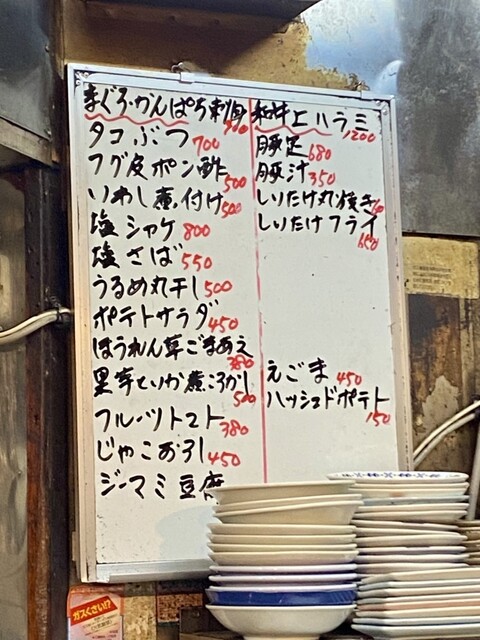 まぐろ・かんぱち刺身
タコぶつ 700
フグ皮ポン酢 500
いわし煮付け 500
塩シャケ 800
塩さば 550
うるめ丸干し 500
ポテトサラダ 450
ほうれん草ごまあえ 380
里芋といか煮ころがし 500
フルーツトマト 380
じゃこおろし 450
ジーマミ豆腐
和牛上ハラミ 1200
豚足 680
豚汁 350
しいたけ丸焼き
しいたけフライ 650
えごま 450
ハッシュドポテト 150
ガスくさい!?